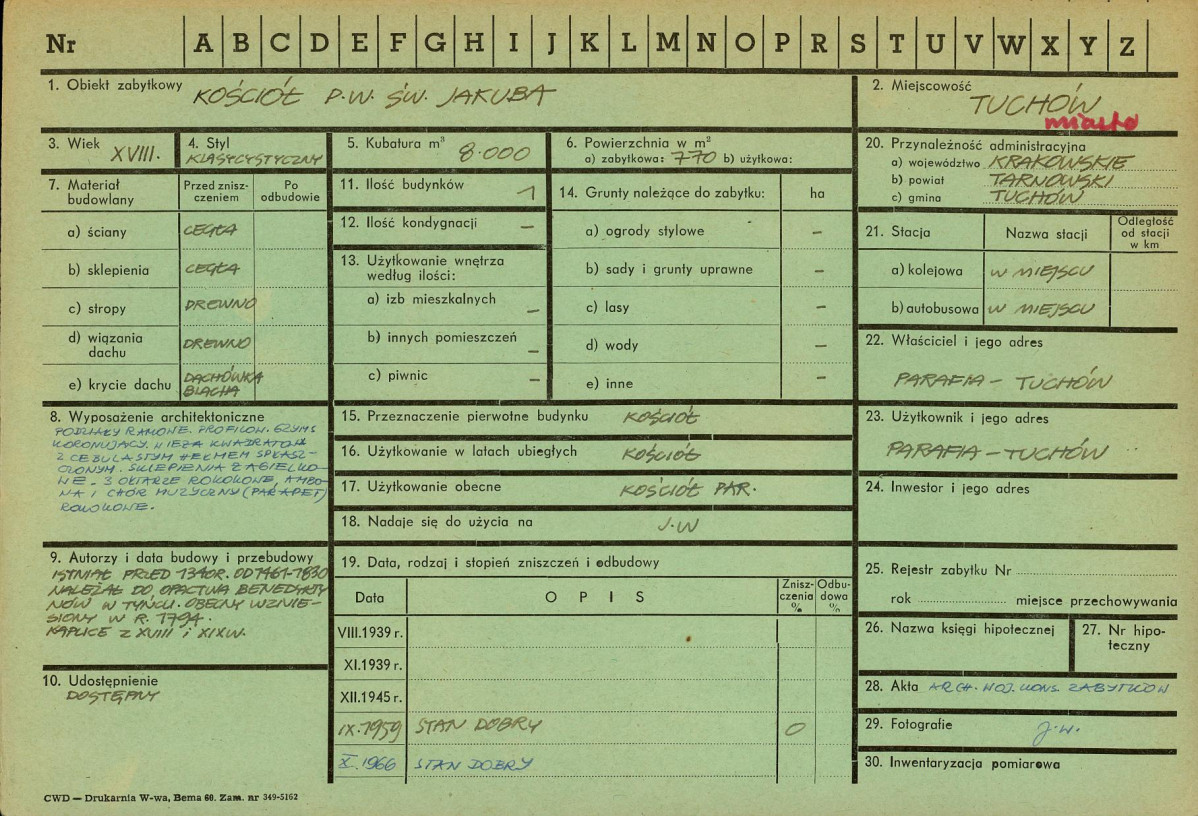 Nr A B C D E F G H I J K L M N O P R S T U V W X Y Z
1. Obiekt zabytkowy KOŚCIÓŁ P.W. ŚW. JAKUBA
2. Miejscowość
TUCHÓW
miasto
3. Wiek XVIII.
4. Styl
KLASYCYSTYCZNY
5. Kubatura m³ 8.000
6. Powierzchnia w m²
a) zabytkowa: 770 b) użytkowa:
7. Materiał budowlany
Przed znisz-
czeniem
Po
odbudowie
a) ściany CEGŁA
b) sklepienia CEGŁA
c) stropy DREWNO
d) wiązania
dachu DREWNO
e) krycie dachu DACHÓWKA
BLACHA
8. Wyposażenie architektoniczne
PODZIAŁY RAMOWE. PROFILOW. GZYMS
KORONUJĄCY. WIEŻA KWADRATOWA
Z CEBULASTYM HEŁMEM SPŁASZ-
CZONYM. SKLEPIENIA ŻAGIELKO-
WE. 3 OŁTARZE ROKOKOWE, AMBO-
NA I CHÓR MUZYCZNY (PARAPET)
ROKOKOWE.
9. Autorzy i data budowy i przebudowy
ISTNIAŁ PRZED 1340R. OD 1461-1830
NALEŻAŁ DO OPACTWA BENEDYKTY
NÓW W TYŃCU. OBECNY WZNIE-
SIONY W R. 1794.
KAPLICE Z XVIII i XIXW.
10. Udostępnienie
DOSTĘPNY
11. Ilość budynków 1
12. Ilość kondygnacji –
13. Użytkowanie wnętrza
według ilości:
a) izb mieszkalnych –
b) innych pomieszczeń –
c) piwnic –
14. Grunty należące do zabytku: ha
a) ogrody stylowe –
b) sady i grunty uprawne –
c) lasy –
d) wody –
e) inne –
15. Przeznaczenie pierwotne budynku KOŚCIÓŁ
16. Użytkowanie w latach ubiegłych KOŚCIÓŁ
17. Użytkowanie obecne KOŚCIÓŁ PAR.
18. Nadaje się do użycia na J.W
19. Data, rodzaj i stopień zniszczeń i odbudowy
Data
O P I S
Znisz-
czenia
%
Odbu-
dowa
%
VIII.1939 r.
XI.1939 r.
XII.1945 r.
IX.1959 STAN DOBRY 0
X.1966 STAN DOBRY
20. Przynależność administracyjna
a) województwo KRAKOWSKIE
b) powiat TARNOWSKI
c) gmina TUCHÓW
21. Stacja
Nazwa stacji
Odległość
od stacji
w km
a) kolejowa W MIEJSCU
b) autobusowa W MIEJSCU
22. Właściciel i jego adres
PARAFIA – TUCHÓW
23. Użytkownik i jego adres
PARAFIA – TUCHÓW
24. Inwestor i jego adres
25. Rejestr zabytku Nr
rok miejsce przechowywania
26. Nazwa księgi hipotecznej
27. Nr hipo-
teczny
28. Akta ARCH. WOJ. KONS. ZABYTKÓW
29. Fotografie J.W.
30. Inwentaryzacja pomiarowa
CWD — Drukarnia W-wa, Bema 60. Zam. nr 349-5162